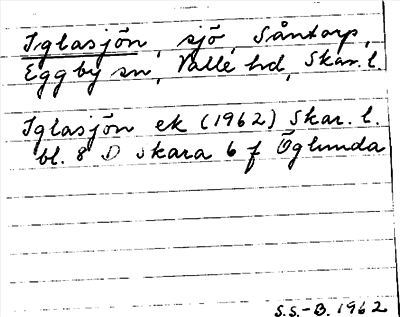 Iglasjön, sjö, Såntorp,
Eggby sn, Valle hd, Skar. l.
Iglasjön ek (1962) Skar. l.
bl. 8 D Skara 6 f Öglunda
S.S.-B. 1962